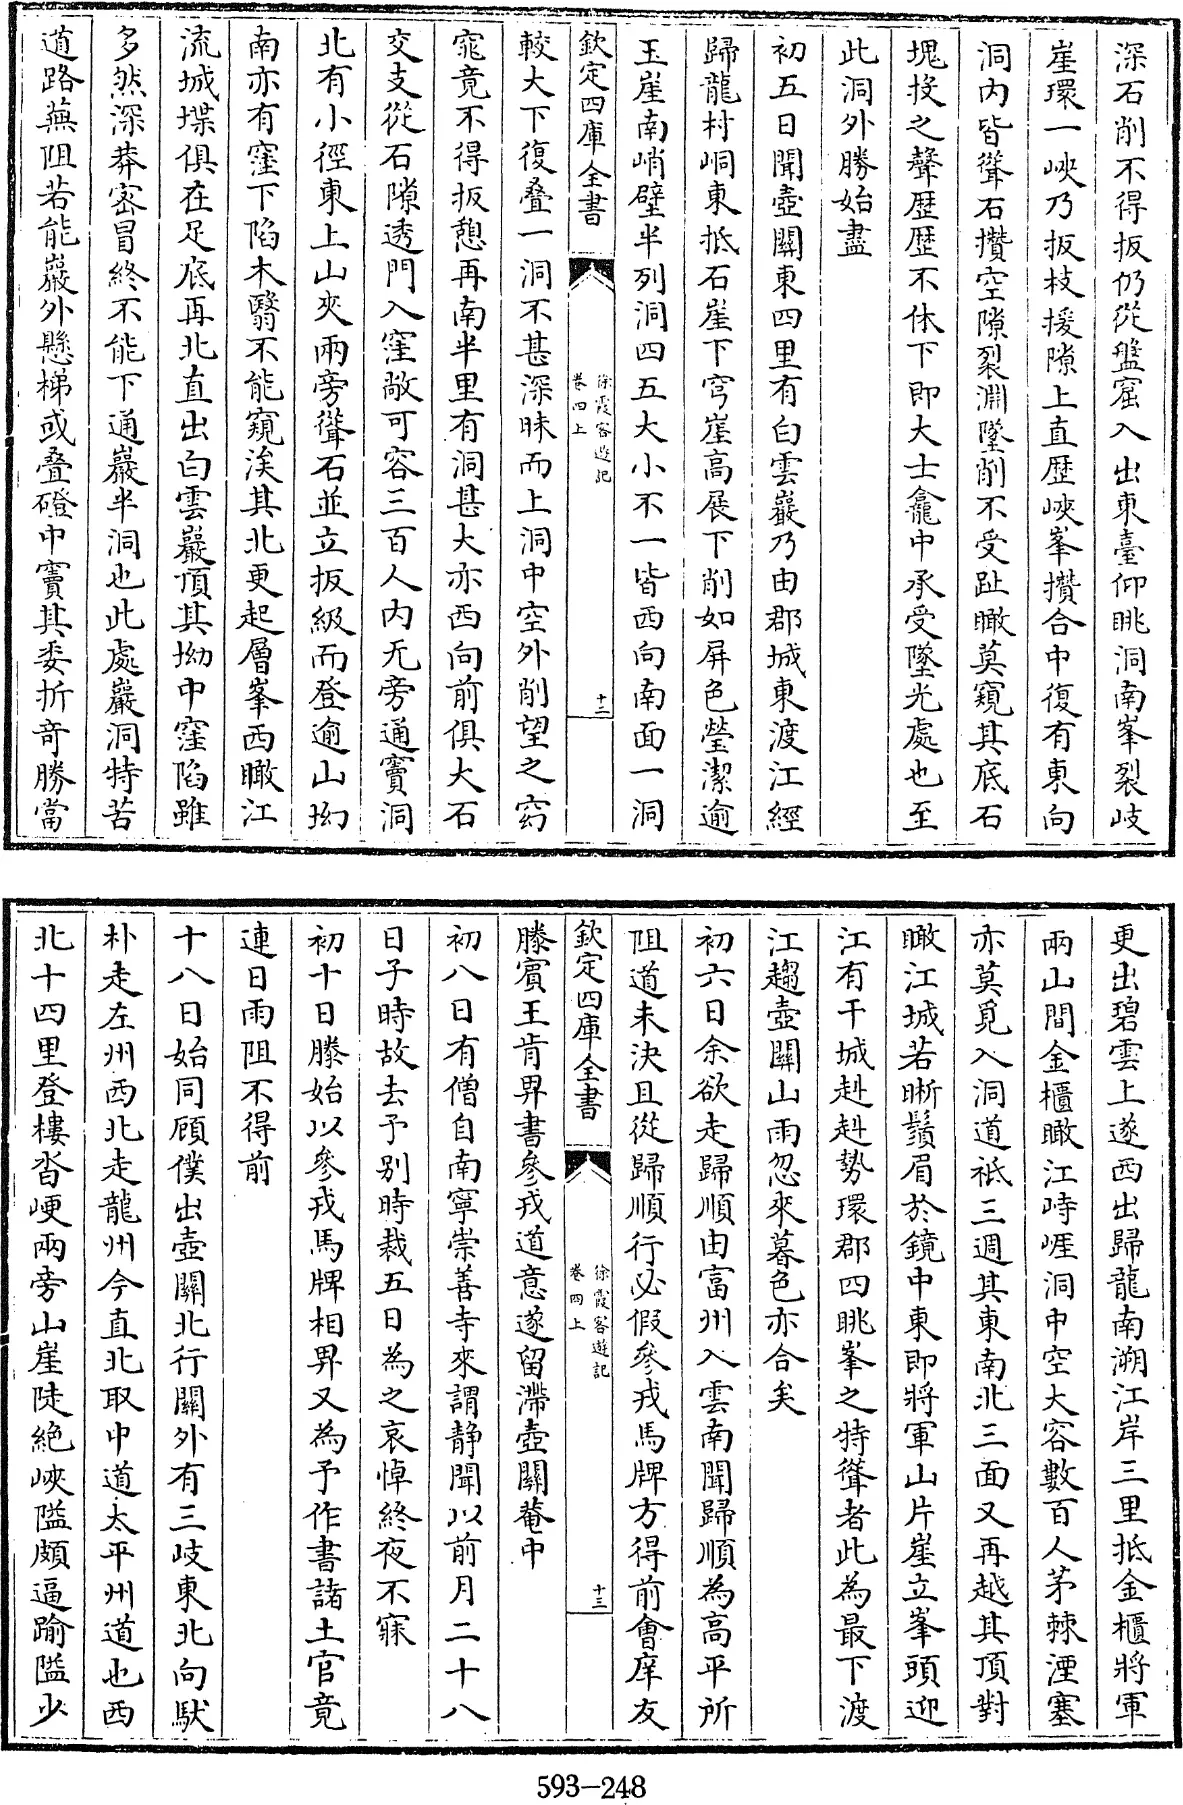 深石削不得扳仍從盤窟入出東臺仰眺洞南峯裂岐
崖環一峽乃扳枝援隙上直歴峽峯攢合中復有東向
洞内皆聳石攢空隙裂淵墜削不受趾瞰莫窺其底石
塊投之聲歴歴不休下即大士龕中承受墜光處也至
此洞外勝始盡
初五日聞壺關東四里有白雲巖乃由郡城東渡江經
歸龍村峒東抵石崖下穹崖高展下削如屏色瑩潔逾
玉崖南峭壁半列洞四五大小不一皆西向南面一洞
欽定四庫全書
徐霞客遊記
卷四上
十二
較大下復叠一洞不甚深昧而上洞中空外削望之窈
窕竟不得扳憩再南半里有洞甚大亦西向前俱大石
交支從石隙透門入窪敞可容三百人内无旁通竇洞
北有小徑東上山夾兩旁聳石並立扳級而登逾山坳
南亦有窪下陷木翳不能窺渓其北更起層峯西瞰江
流城堞俱在足底再北直出白雲巖頂其坳中窪陷雖
多然深莽宻冒終不能下通巖半洞也此處巖洞特苦
道路蕪阻若能巖外懸梯或叠磴中竇其委折竒勝當
更出碧雲上遂西出歸龍南溯江岸三里抵金櫃將軍
兩山間金櫃瞰江峙崕洞中空大容數百人茅棘湮塞
亦莫覓入洞道祇三週其東南北三面又再越其頂對
瞰江城若晰鬚眉於鏡中東即將軍山片崖立峯頭迎
江有干城赳赳勢環郡四眺峯之特聳者此為最下渡
江趨壺關山雨忽來暮色亦合矣
初六日余欲走歸順由富州入雲南聞歸順為高平所
阻道未決且從歸順行必假參戎馬牌方得前會庠友
欽定四庫全書
徐霞客遊記
卷四上
十三
滕賓王肯畀書參戎道意遂留滯壺關菴中
初八日有僧自南寧崇善寺來謂静聞以前月二十八
日子時故去予别時裁五日為之哀悼終夜不寐
初十日滕始以參戎馬牌相畀又為予作書諸土官竟
連日雨阻不得前
十八日始同顧僕出壺關北行關外有三岐東北向馱
朴走左州西北走龍州今直北取中道太平州道也西
北十四里登樓沓峺兩旁山崖陡絶峽隘頗逼踰隘少